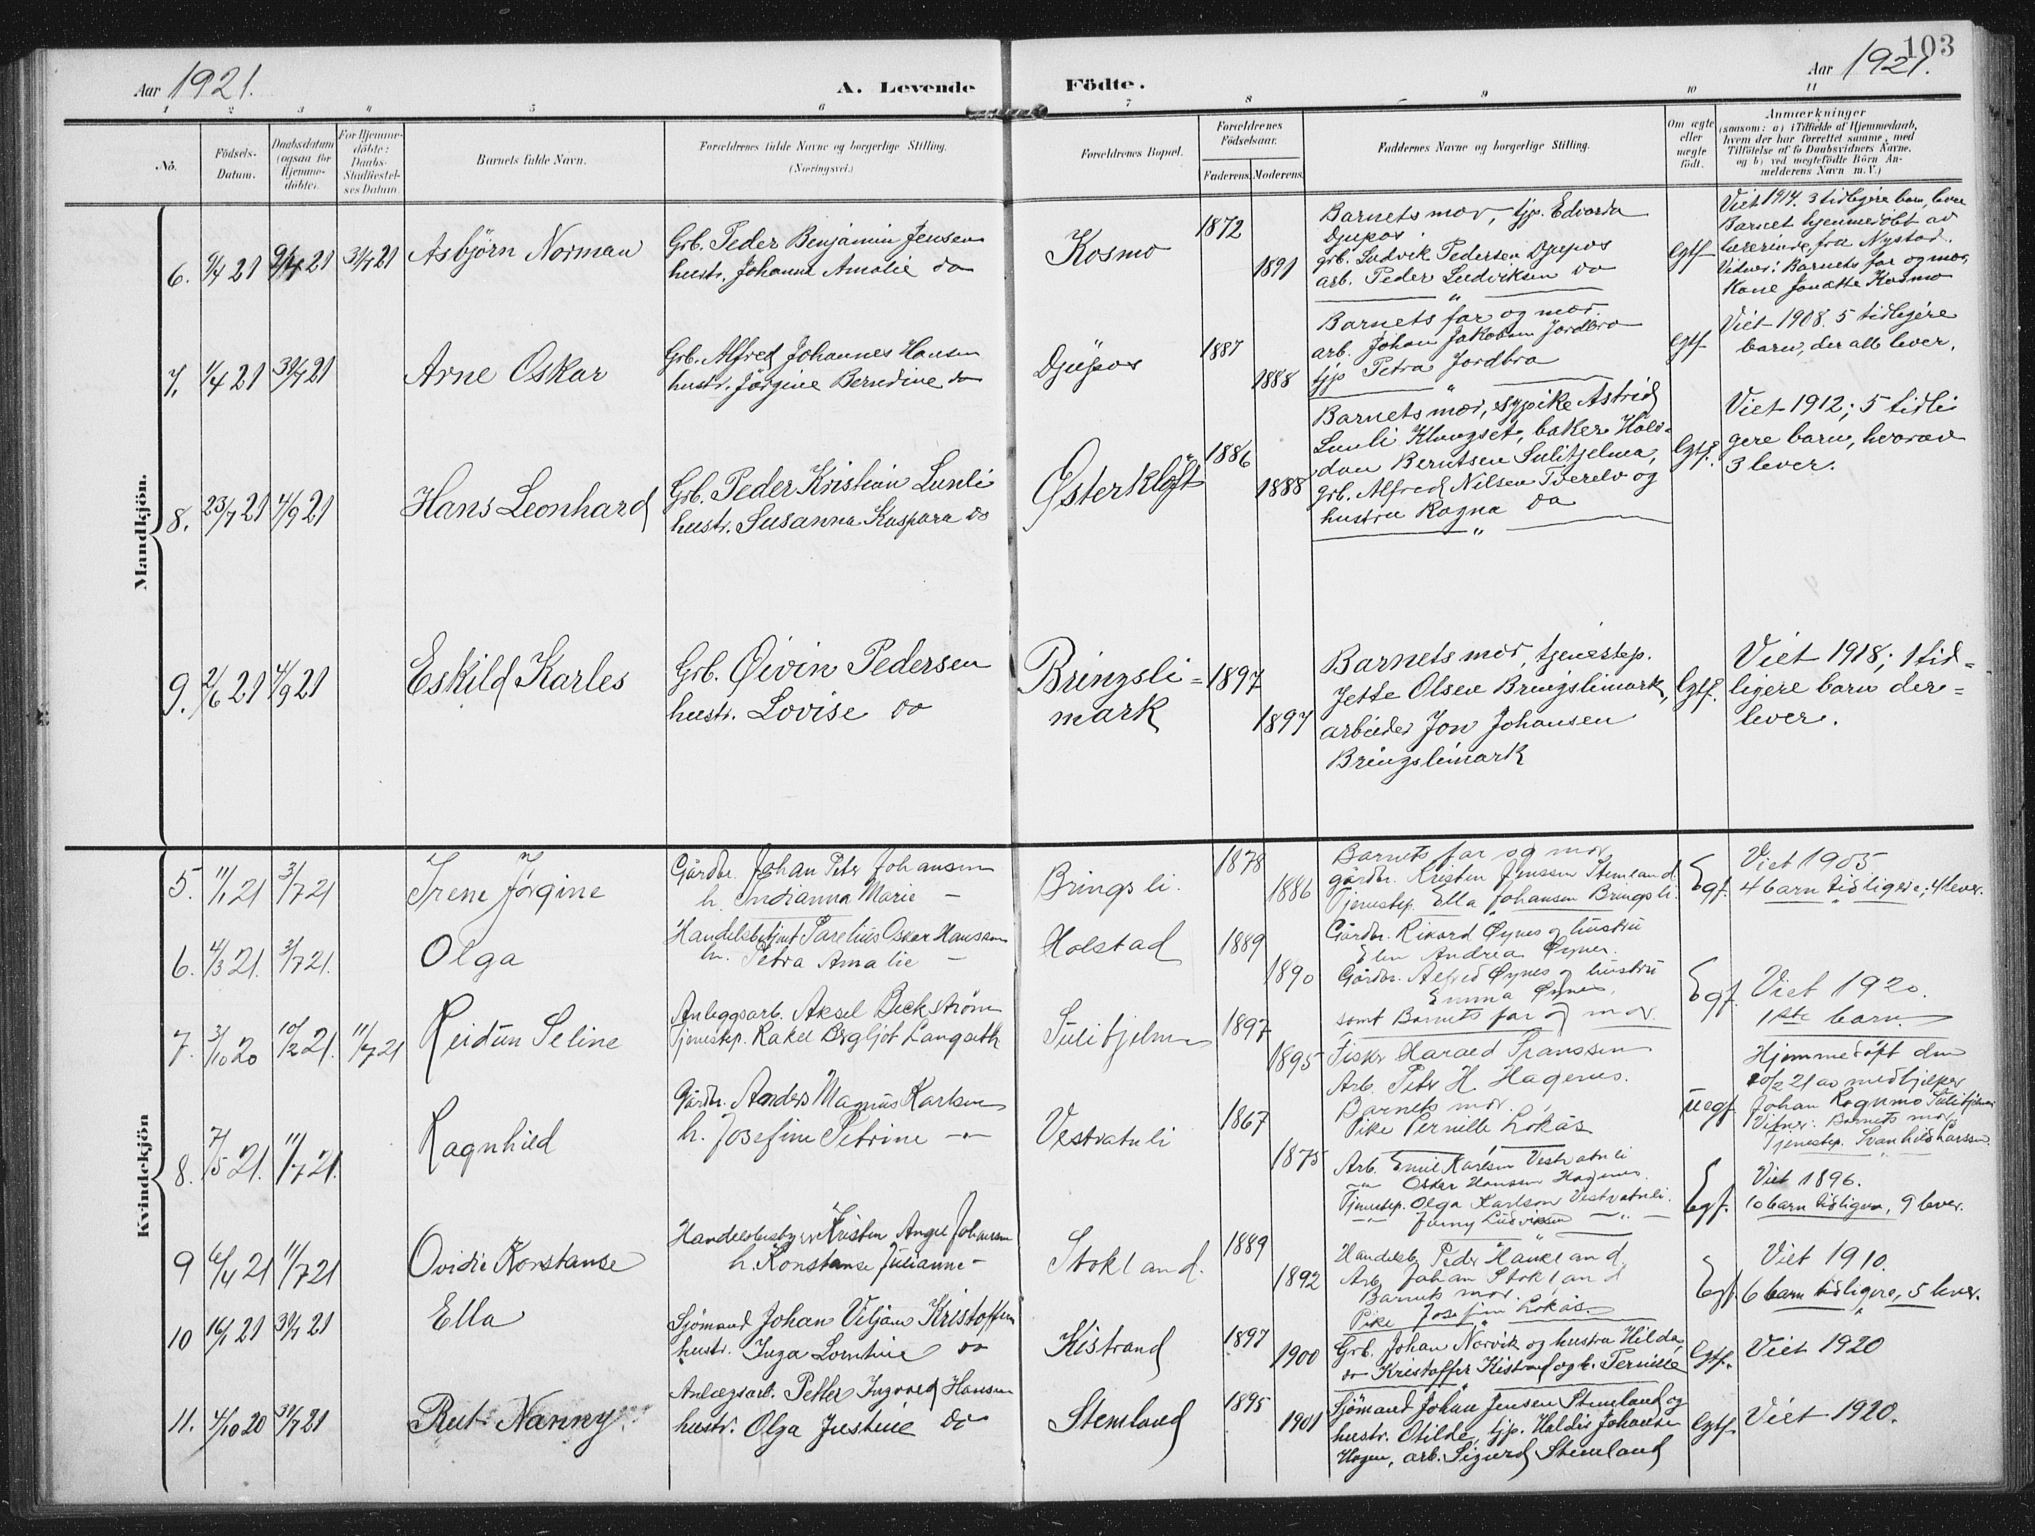 103
Aar 1921.
A. Levende
Födte.
Aar 1921.
1 2 3 4 5 6 7 8 9 10 11
No.
Födsels-
Datum.
Daabsdatum
(ogsaa for
Hjemme-
döbte).
For Hjemme-
döbte:
Daabs-
Stadfæstel-
ses Datum.
Barnets fulde Navn.
Forældrenes fulde Navne og borgerlige Stilling.
(Næringsvei.)
Forældrenes Bopæl.
Forældrenes
Födselsaar.
Faderens. Moderens.
Faddernes Navne og borgerlige Stilling.
Om ægte
eller
uægte
födt.
Anmærkninger
(saasom: a) i Tilfælde af Hjemmedaab,
hvem der har forrettet samme, med
Tilföielse af to Daabsvidners Navne,
og b) ved uegtefödte Börn An-
melderens Navn m. V.)
Mandkjön.
6. 9/4 21 9/4 21 31/7 21
Asbjörn Norman
Grb. Peder Benjamin Jensen
hustr. Johanne Amalie do
Kosmo
1872
1891
Barnets mor, tjp. Edvarda
Djupos.
grb. Ludvik Pedersen Djupos
arb. Peder Ludviksen do
Egtf
Viet 1914. 3 tidligere barn, lever
Barnet hjemmedöbt av
lærerinde fru Nystad.
Vidner: Barnets far og mor,
Kone Jonette Kosmo
7. 1/4 21 31/7 21
Arne Oskar
Grb. Alfred Johannes Hansen
hustr. Jörgine Berndine do
Djupos
1887
1888
Barnets far og mor.
arb. Johan Jakobsen Jordbro
tjp Petra Jordbro
Egtf
Viet 1908. 5 tidligere
barn, der alle lever.
8. 23/7 21 4/9 21
Hans Leonhard
Grb. Peder Kristian Lunli
hustr. Susanna Kaspara do
Østerkløft
1886
1888
Barnets mor, sypike Astrid
Lunli Klungset, baker Halv-
dan Berntsen Sulitjelma,
grb. Alfred Nilsen Tverelv og
hustru Ragna do
Egtf.
Viet 1912; 5 tidli
gere barn, hvorav
3 lever.
9. 2/6 21 4/9 21
Eskild Karles
Grb. Øivin Pedersen
hustr. Lovise do
Bringsli-
mark
1897
1897
Barnets mor, tjenestep.
Jette Olsen Bringslimark,
arbeider Jon Johansen
Bringslimark
Egtf.
Viet 1918; 1 tid-
ligere barn der-
lever.
Kvindekjön
5. 11/1 21 3/7 21
Irene Jørgine
Gårdbr. Johan Peter Johansen
h. Indianna Marie —
Bringsli.
1878
1886
Barnets far og mor
gårdbr. Kristen Jenssen Stemland.
Tjenestep. Ella Johansen Bringsli.
Egf.
Viet 1905
4 barn tidligere; 4 lever.
6. 4/3 21. 3/7 21.
Olga
Handelsbetjent Parelius Oskar Hanssen
h. Petra Amalie —
Holstad
1889
1890
Gårdbr. Rikard Øynes og hustru
Elen Andrea Øynes.
Gårdbr. Alfred Øynes og hustru
Emma Øynes,
samt Barnets far og mor.
Egf.
Viet 1920.
1ste barn.
7. 3/10 20 10/2 21. 11/7 21
Reidun Seline
Anleggsarb. Aksel Beckstrøm
Tjenestep. Rakel Bergljot Langseth
Sulitjelma
1897
1895
Fisker Harald Franssen
Arb. Peter H. Hagenes.
Barnets mor.
Pike Pernille Løkås
uegf.
Hjemmedöpt den
10/2 21 av medhjelper
Johan Rognmo Sulitjelma
Vitner: Barnets mor,
Tjenestep. Svanhild Larssen.
8. 7/5 21. 11/7 21.
Ragnhild
Gårdbr. Anders Magnus Karlsen
h. Josefine Petrine —"—
Vestvatnli
1867
1875
Arb. Emil Karlsen Vestvatnli
—"— Oskar Hansen Hagenes
Tjenestep. Olga Karlson Vestvatnli.
—"— Jenny Ludviksen —"—
Egf.
Viet 1896.
10 barn tidligere, 9 lever.
9 6/4 21 11/7 21
Ovidie Konstanse
Handelsbestyrer Kristen Angel Johansen
h. Konstanse Julianne —
Stokland.
1889
1892
Handelsb. Peder Haukland,
Arb. Johan Stokland
Barnets mor.
Pike Josefine Løkås.
Egf
Viet 1910.
6 barn tidligere, 5 lever.
10 16/1 21 31/7 21
Ella
Sjömand Johan Viljam Kristoffersen
hustr. Inga Lorntine do
Kistrand
1897
1900
Grb. Johan Norvik og hustru Hilda,
do Kristoffer Kistrand og h. Pernille
Egtf.
Viet 1920
11. 4/10 20 31/7 21
Rut Nanny
Anlægsarb. Petter Ingvald Hansen
hustr. Olga Justine do
Stemland
1895
1901
Sjömand Johan Jensen Stemland og
hustr. Otilde, tjp. Haldis Johanse
Hagen, arb. Sigurd Stemland
Egtf
Viet 1920.